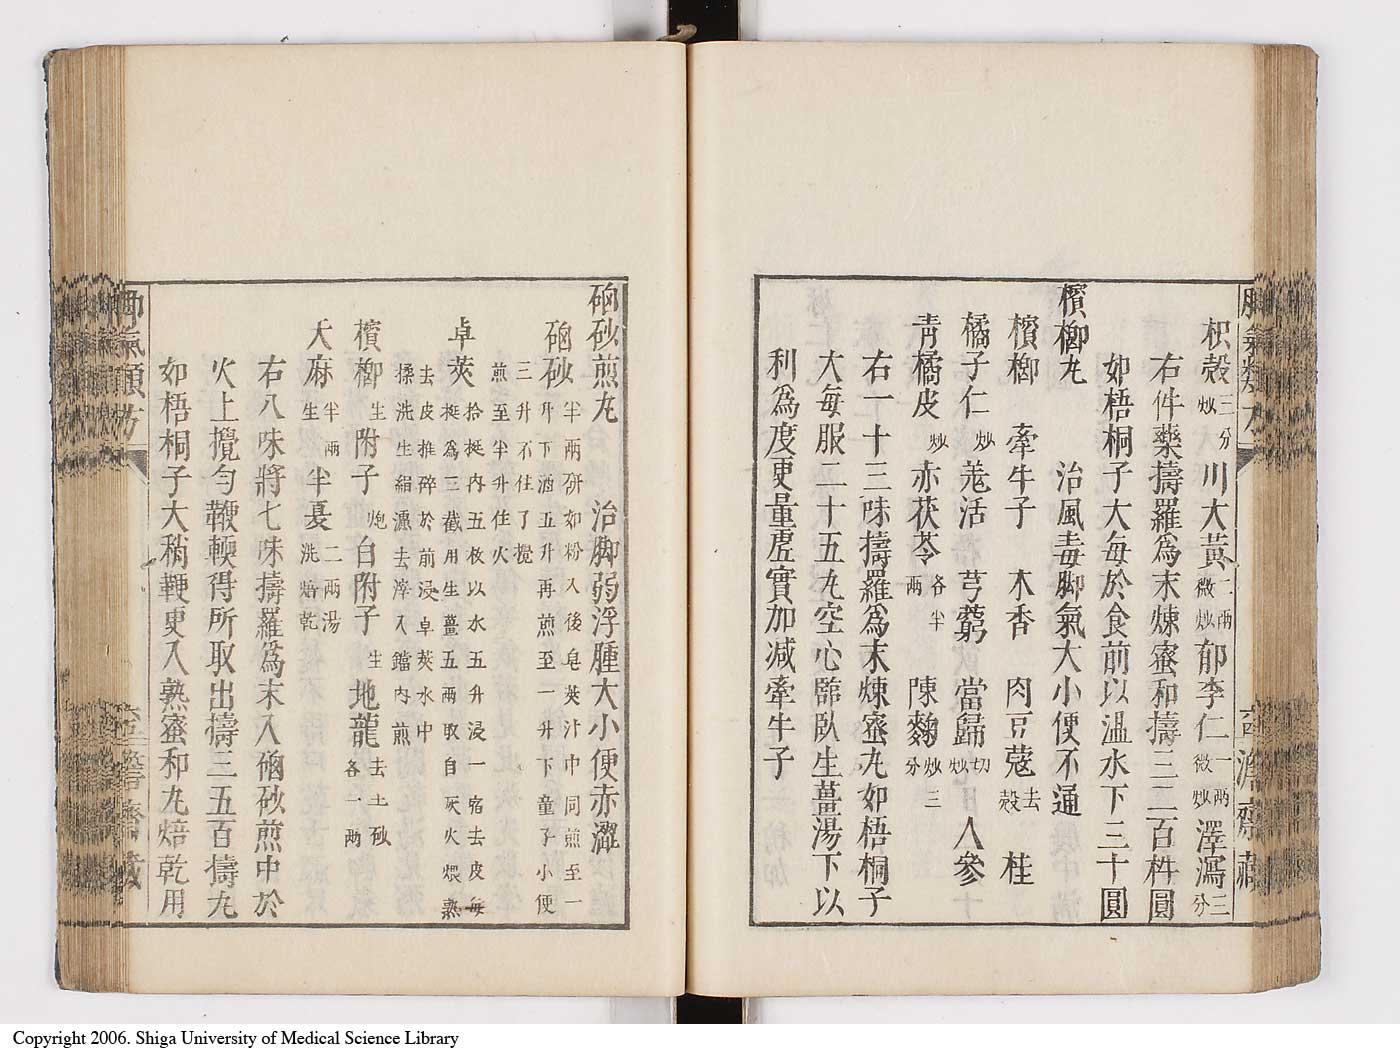 枳殻三分炒川大黃二兩微炒郁李仁一兩微炒澤瀉三分
右件藥擣羅爲末煉蜜和擣三二百杵圓
如梧桐子大每於食前以溫水下三十圓
檳榔丸　治風毒脚氣大小便不通
檳榔　牽牛子　木香　肉豆蔻去殼　桂
橘子仁炒　羗活　芎藭　當歸切炒　人參
靑橘皮炒　赤茯苓各半兩　陳麴炒三分
右一十三味擣羅爲末煉蜜丸如梧桐子
大每服二十五丸空心臨臥生薑湯下以
利爲度更量虛實加減牽牛子
奇澹齋藏
硇砂煎丸　治脚弱浮腫大小便赤澀
硇砂半兩研如粉入後皂莢汁中同煎至一升下酒五升再煎至一升下童子小便三升不住了攪煎至半升住火
卓莢拾挺內五枚以水五升浸一宿去皮每挺爲三截用生薑五兩取自灰火煨熟去皮推碎於前浸卓莢水中揉洗生絹濾去滓入鐺內煎
檳榔生　附子炮　白附子生　地龍去土砂各一兩
天麻半兩生　半夏二兩湯洗焙乾
右八味將七味擣羅爲末入硇砂煎中於
火上攪勻鞭輭得所取出擣三五百擣丸
如梧桐子大稍鞕更入熟蜜和丸焙乾用
脚氣類方